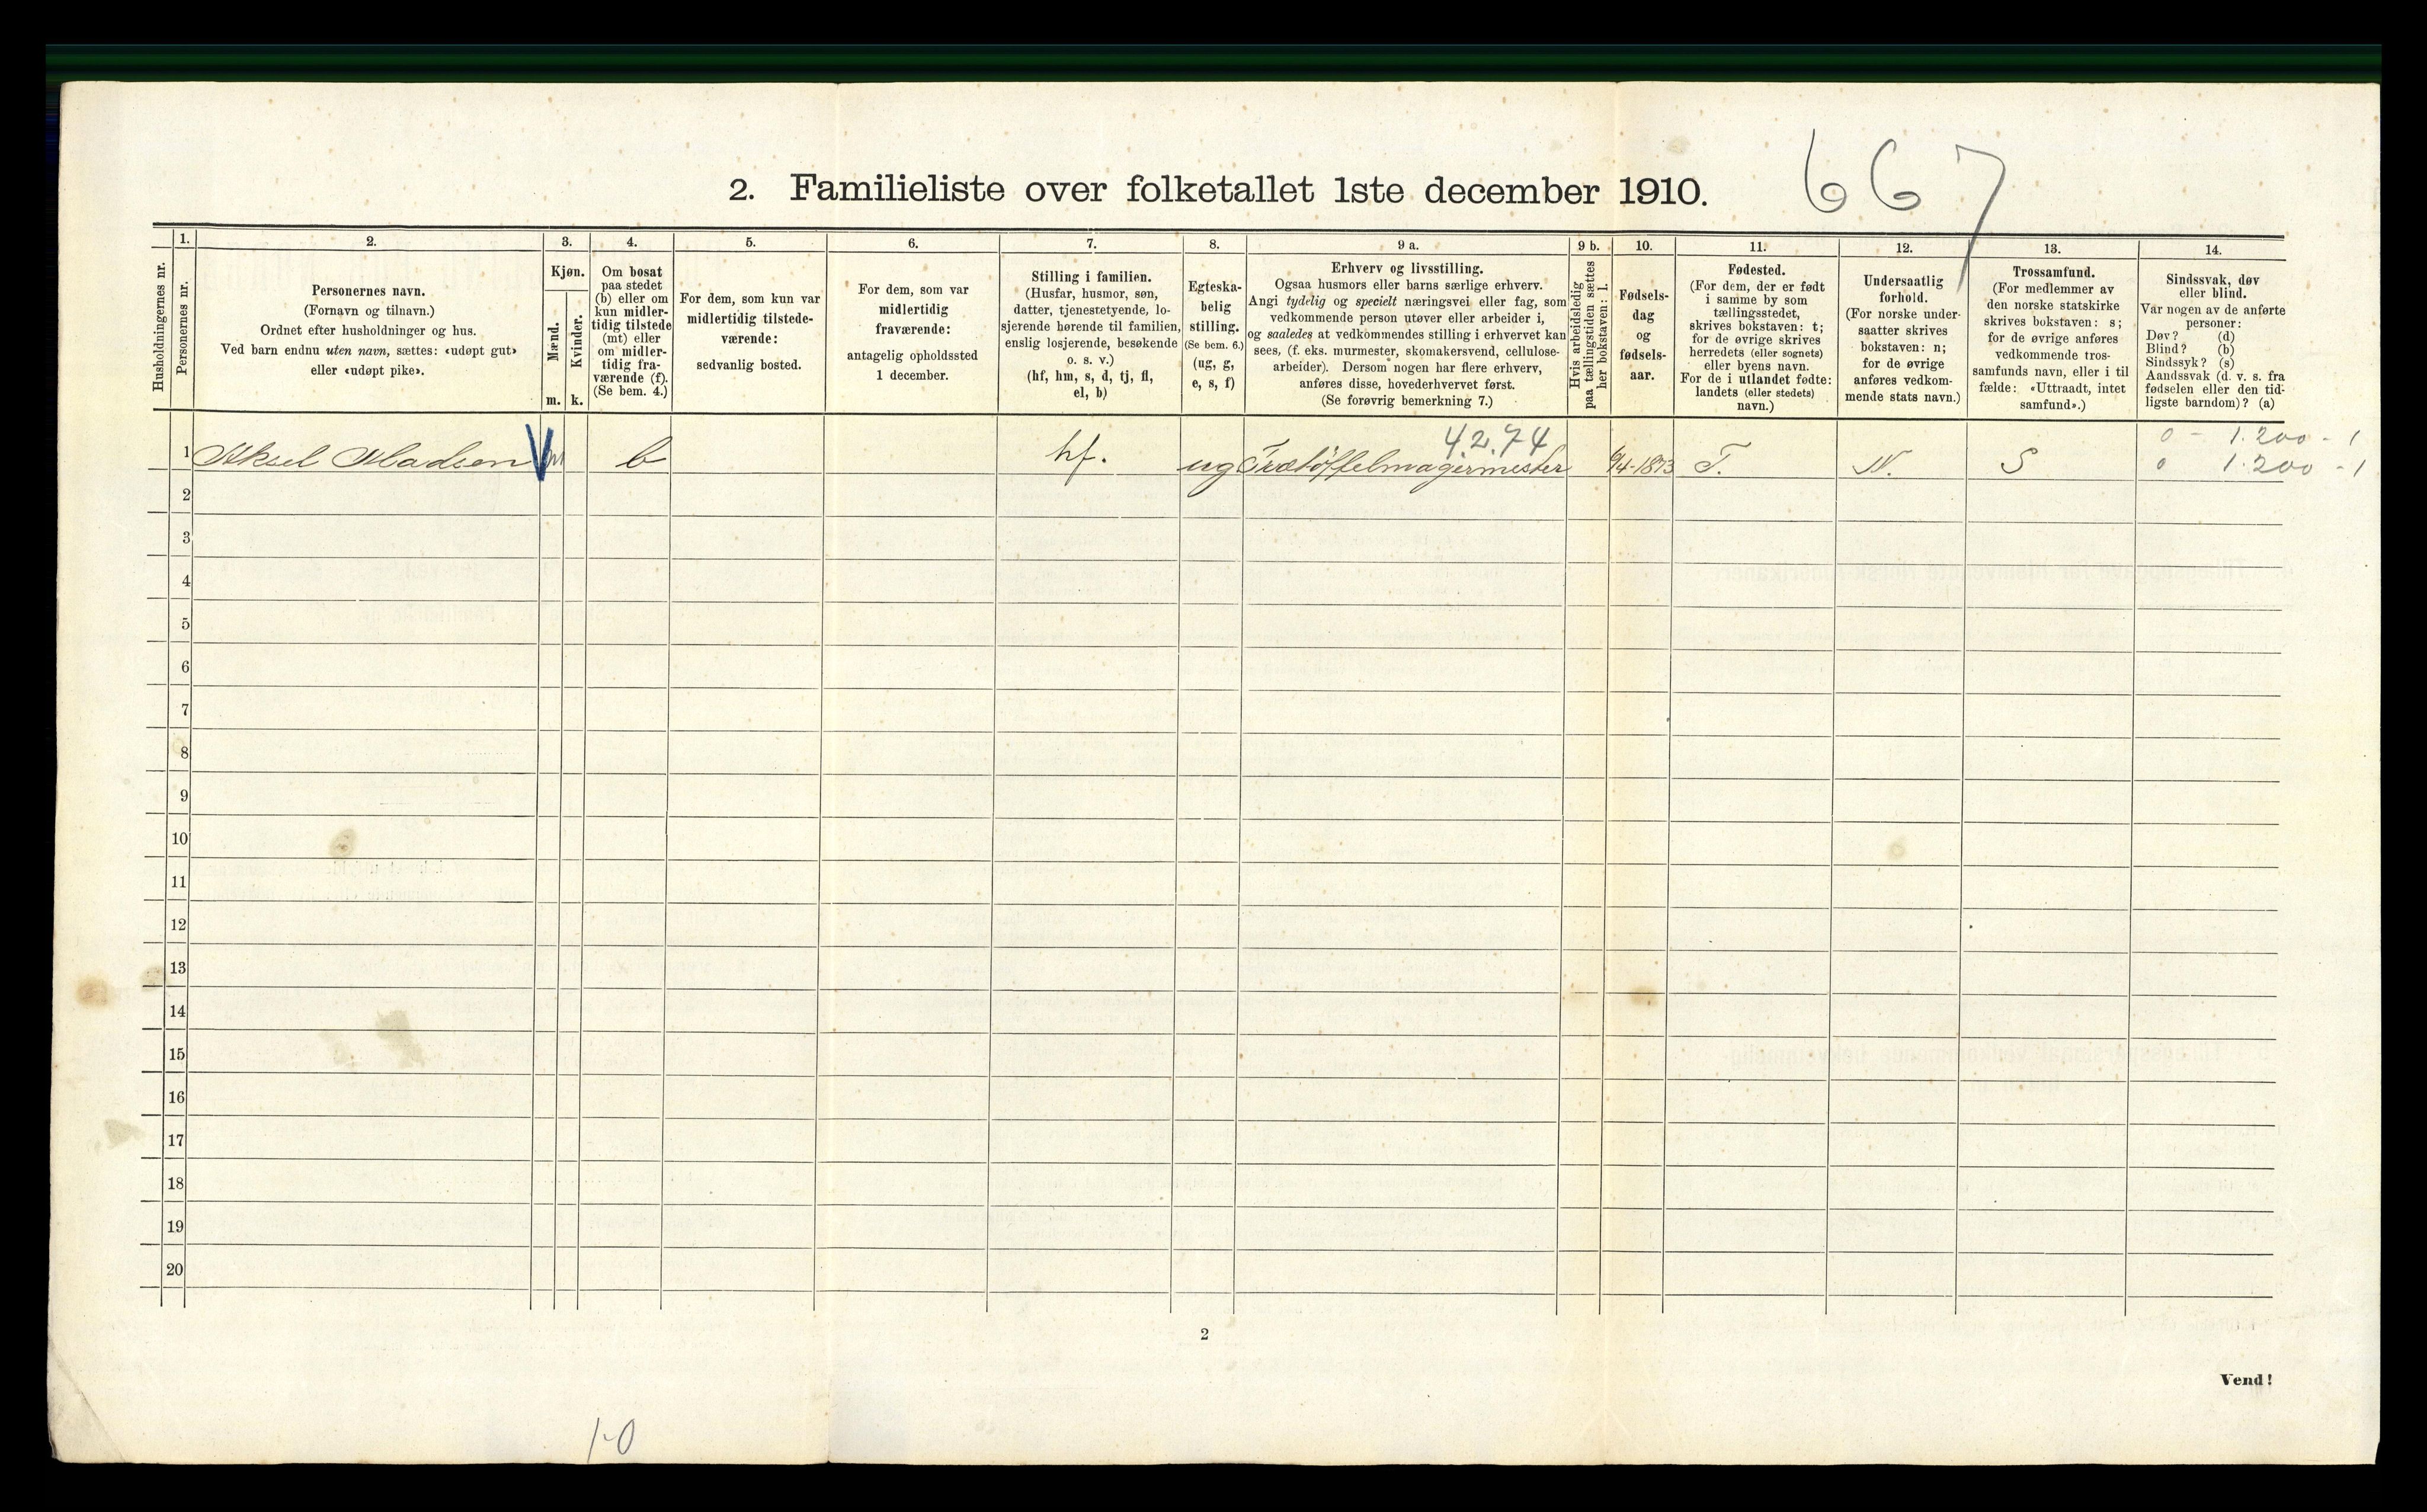 667
2. Familieliste over folketallet 1ste december 1910.
Husholdningernes nr.
1.
Personernes nr.
2.
Personernes navn.
(Fornavn og tilnavn.)
Ordnet efter husholdninger og hus.
Ved barn endnu uten navn, sættes: «udøpt gut»
eller «udøpt pike».
3.
Kjøn.
Mænd.
m.
Kvinder.
k.
4.
Om bosat
paa stedet
(b) eller om
kun midler-
tidig tilstede
(mt) eller
om midler-
tidig fra-
værende (f).
(Se bem. 4.)
5.
For dem, som kun var
midlertidig tilstede-
værende:
sedvanlig bosted.
6.
For dem, som var
midlertidig
fraværende:
antagelig opholdssted
1 december.
7.
Stilling i familien.
(Husfar, husmor, søn,
datter, tjenestetyende, lo-
sjerende hørende til familien,
enslig losjerende, besøkende
o. s. v.)
(hf, hm, s, d, tj, fl,
el, b)
8.
Egteska-
belig
stilling.
(Se bem. 6.)
(ug, g,
e, s, f)
9 a.
Erhverv og livsstilling.
Ogsaa husmors eller barns særlige erhverv.
Angi tydelig og specielt næringsvei eller fag, som
vedkommende person utøver eller arbeider i,
og saaledes at vedkommendes stilling i erhvervet kan
sees, (f. eks. murmester, skomakersvend, cellulose-
arbeider). Dersom nogen har flere erhverv,
anføres disse, hovederhvervet først.
(Se forøvrig bemerkning 7.)
9 b.
Hvis arbeidsledig
paa tællingstiden sættes
her bokstaven: l.
10.
Fødsels-
dag
og
fødsels-
aar.
11.
Fødested.
(For dem, der er født
i samme by som
tællingsstedet,
skrives bokstaven: t;
for de øvrige skrives
herredets (eller sognets)
eller byens navn.
For de i utlandet fødte:
landets (eller stedets)
navn.)
12.
Undersaatlig
forhold.
(For norske under-
saatter skrives
bokstaven: n;
for de øvrige
anføres vedkom-
mende stats navn.)
13.
Trossamfund.
(For medlemmer av
den norske statskirke
skrives bokstaven: s;
for de øvrige anføres
vedkommende tros-
samfunds navn, eller i til
fælde: «Uttraadt, intet
samfund».)
14.
Sindssvak, døv
eller blind.
Var nogen av de anførte
personer:
Døv? (d)
Blind? (b)
Sindssyk? (s)
Aandssvak (d. v. s. fra
fødselen eller den tid-
ligste barndom)? (a)
42.74
0 - 1.200 - 1
1 Aksel Madsen m b hf. ug Trætöffelmagermester 6/4-1873 T. N. S 0 1.200 - 1
2
3
4
5
6
7
8
9
10
11
12
13
14
15
16
17
18
19
20
2
Vend!
1-0